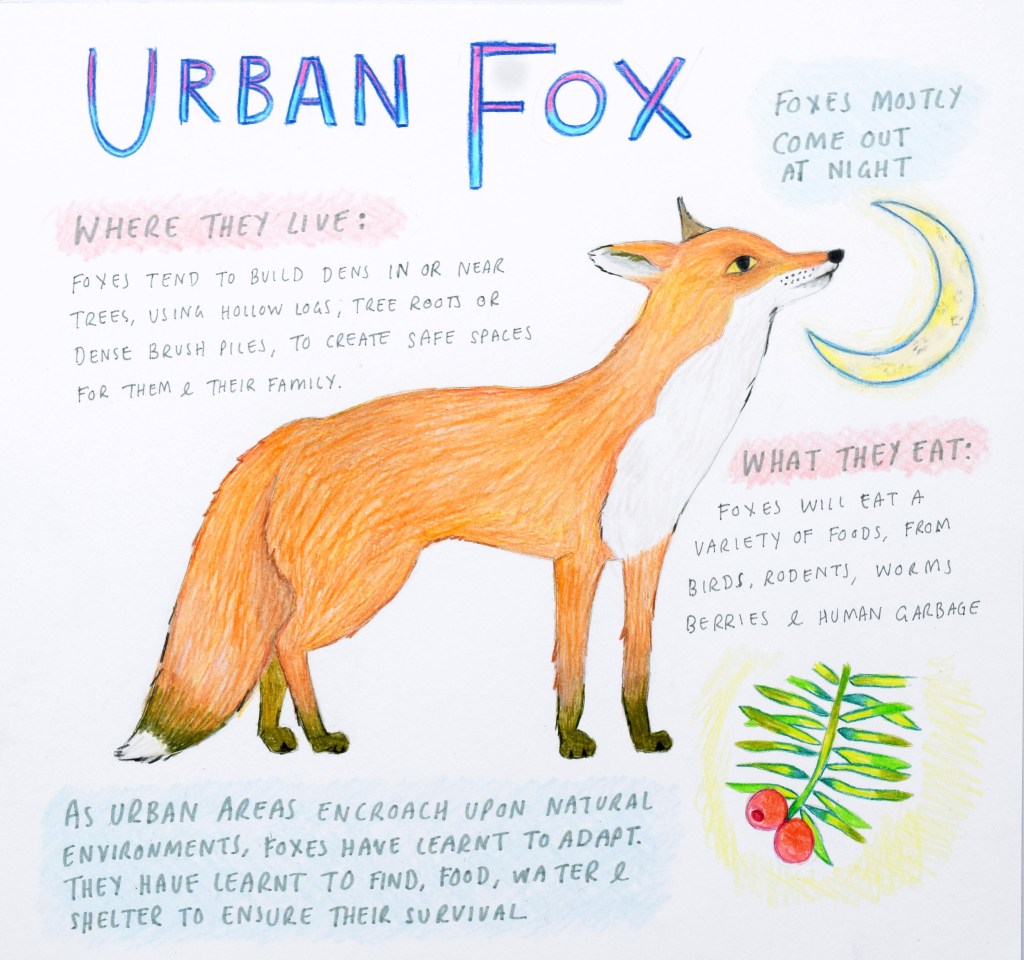 URBAN FOX
FOXES MOSTLY
COME OUT
AT NIGHT
WHERE THEY LIVE:
FOXES TEND TO BUILD DENS IN OR NEAR
TREES, USING HOLLOW LOGS, TREE ROOTS OR
DENSE BRUSH PILES, TO CREATE SAFE SPACES
FOR THEM & THEIR FAMILY.
WHAT THEY EAT:
FOXES WILL EAT A
VARIETY OF FOODS, FROM
BIRDS, RODENTS, WORMS
BERRIES & HUMAN GARBAGE
AS URBAN AREAS ENCROACH UPON NATURAL
ENVIRONMENTS, FOXES HAVE LEARNT TO ADAPT.
THEY HAVE LEARNT TO FIND, FOOD, WATER &
SHELTER TO ENSURE THEIR SURVIVAL